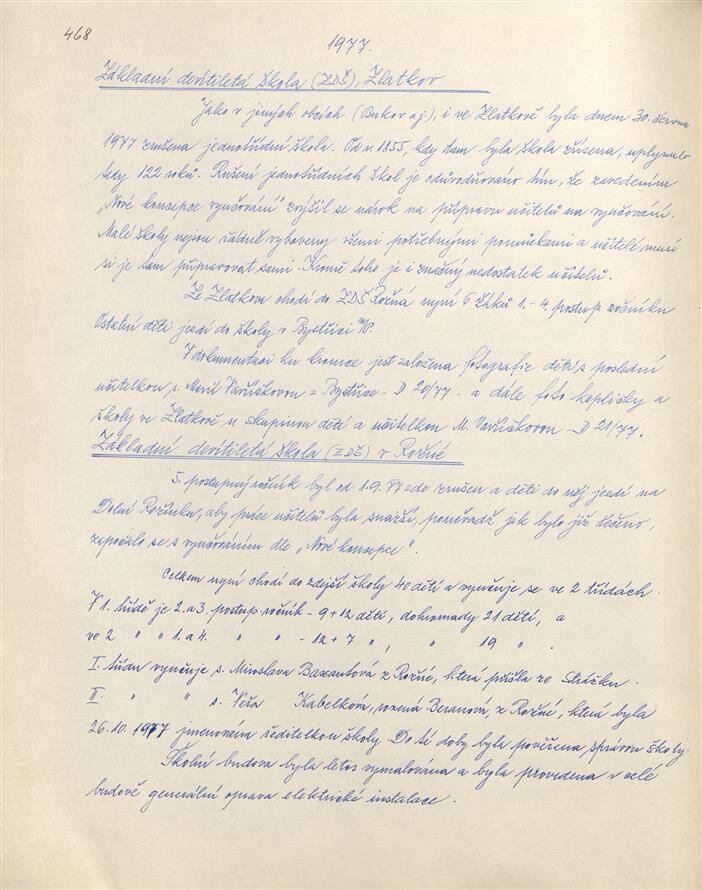 468
1977.
Základní devítiletá škola (ZDŠ), Zlatkov
Jako v jiných obcích (Bukov aj.), i ve Zlatkově byla dnem 30. června
1977 zrušena jednotřídní škola. Od r. 1855, kdy tam byla škola zřízena, uplynulo
tedy 122 roků. Rušení jednotřídních škol je odůvodňováno tím, že zavedením
„Nové koncepce vyučování" zvýšil se nárok na přípravu učitelů na vyučování.
Malé školy nejsou řádně vybaveny všemi potřebnými pomůckami a učitelé musí
si je tam připravovat sami. Kromě toho je i značný nedostatek učitelů.
Ze Zlatkova chodí do ZDŠ Rožná nyní 6 žáků 1.-4. postup. ročníku
Ostatní děti jezdí do školy v Bystřici n/P.
V dokumentaci ku kronice jest založena fotografie dětí s poslední
učitelkou s. Marií Vaříčkovou z Bystřice - D 20/77 - a dále foto kapličky a
školy ve Zlatkově se skupinou dětí a učitelkou M. Vaříčkovou - D 21/77.
Základní devítiletá škola (ZDŠ) v Rožné
5. postupný ročník byl od 1.9.77 zde zrušen a děti do něj jezdí na
Dolní Rožínku, aby práce učitelů byla snazší, poněvadž jak bylo již řečeno,
započalo se s vyučováním dle „Nové koncepce".
Celkem nyní chodí do zdejší školy 40 dětí a vyučuje se ve 2 třídách.
V 1. třídě je 2. a 3. postup. ročník - 9+12 dětí, dohromady 21 dětí, a
ve 2 " " 1. a 4. " " - 12+7 ", " 19 ".
I. třídu vyučuje s. Miroslava Bazantová z Rožné, která přišla ze Strážku.
II. " " s. Věra Kabelková, rozená Beranová, z Rožné, která byla
26.10.1977 jmenována ředitelkou školy. Do té doby byla pověřena správou školy.
Školní budova byla letos vymalována a byla provedena v celé
budově generální oprava elektrické instalace.